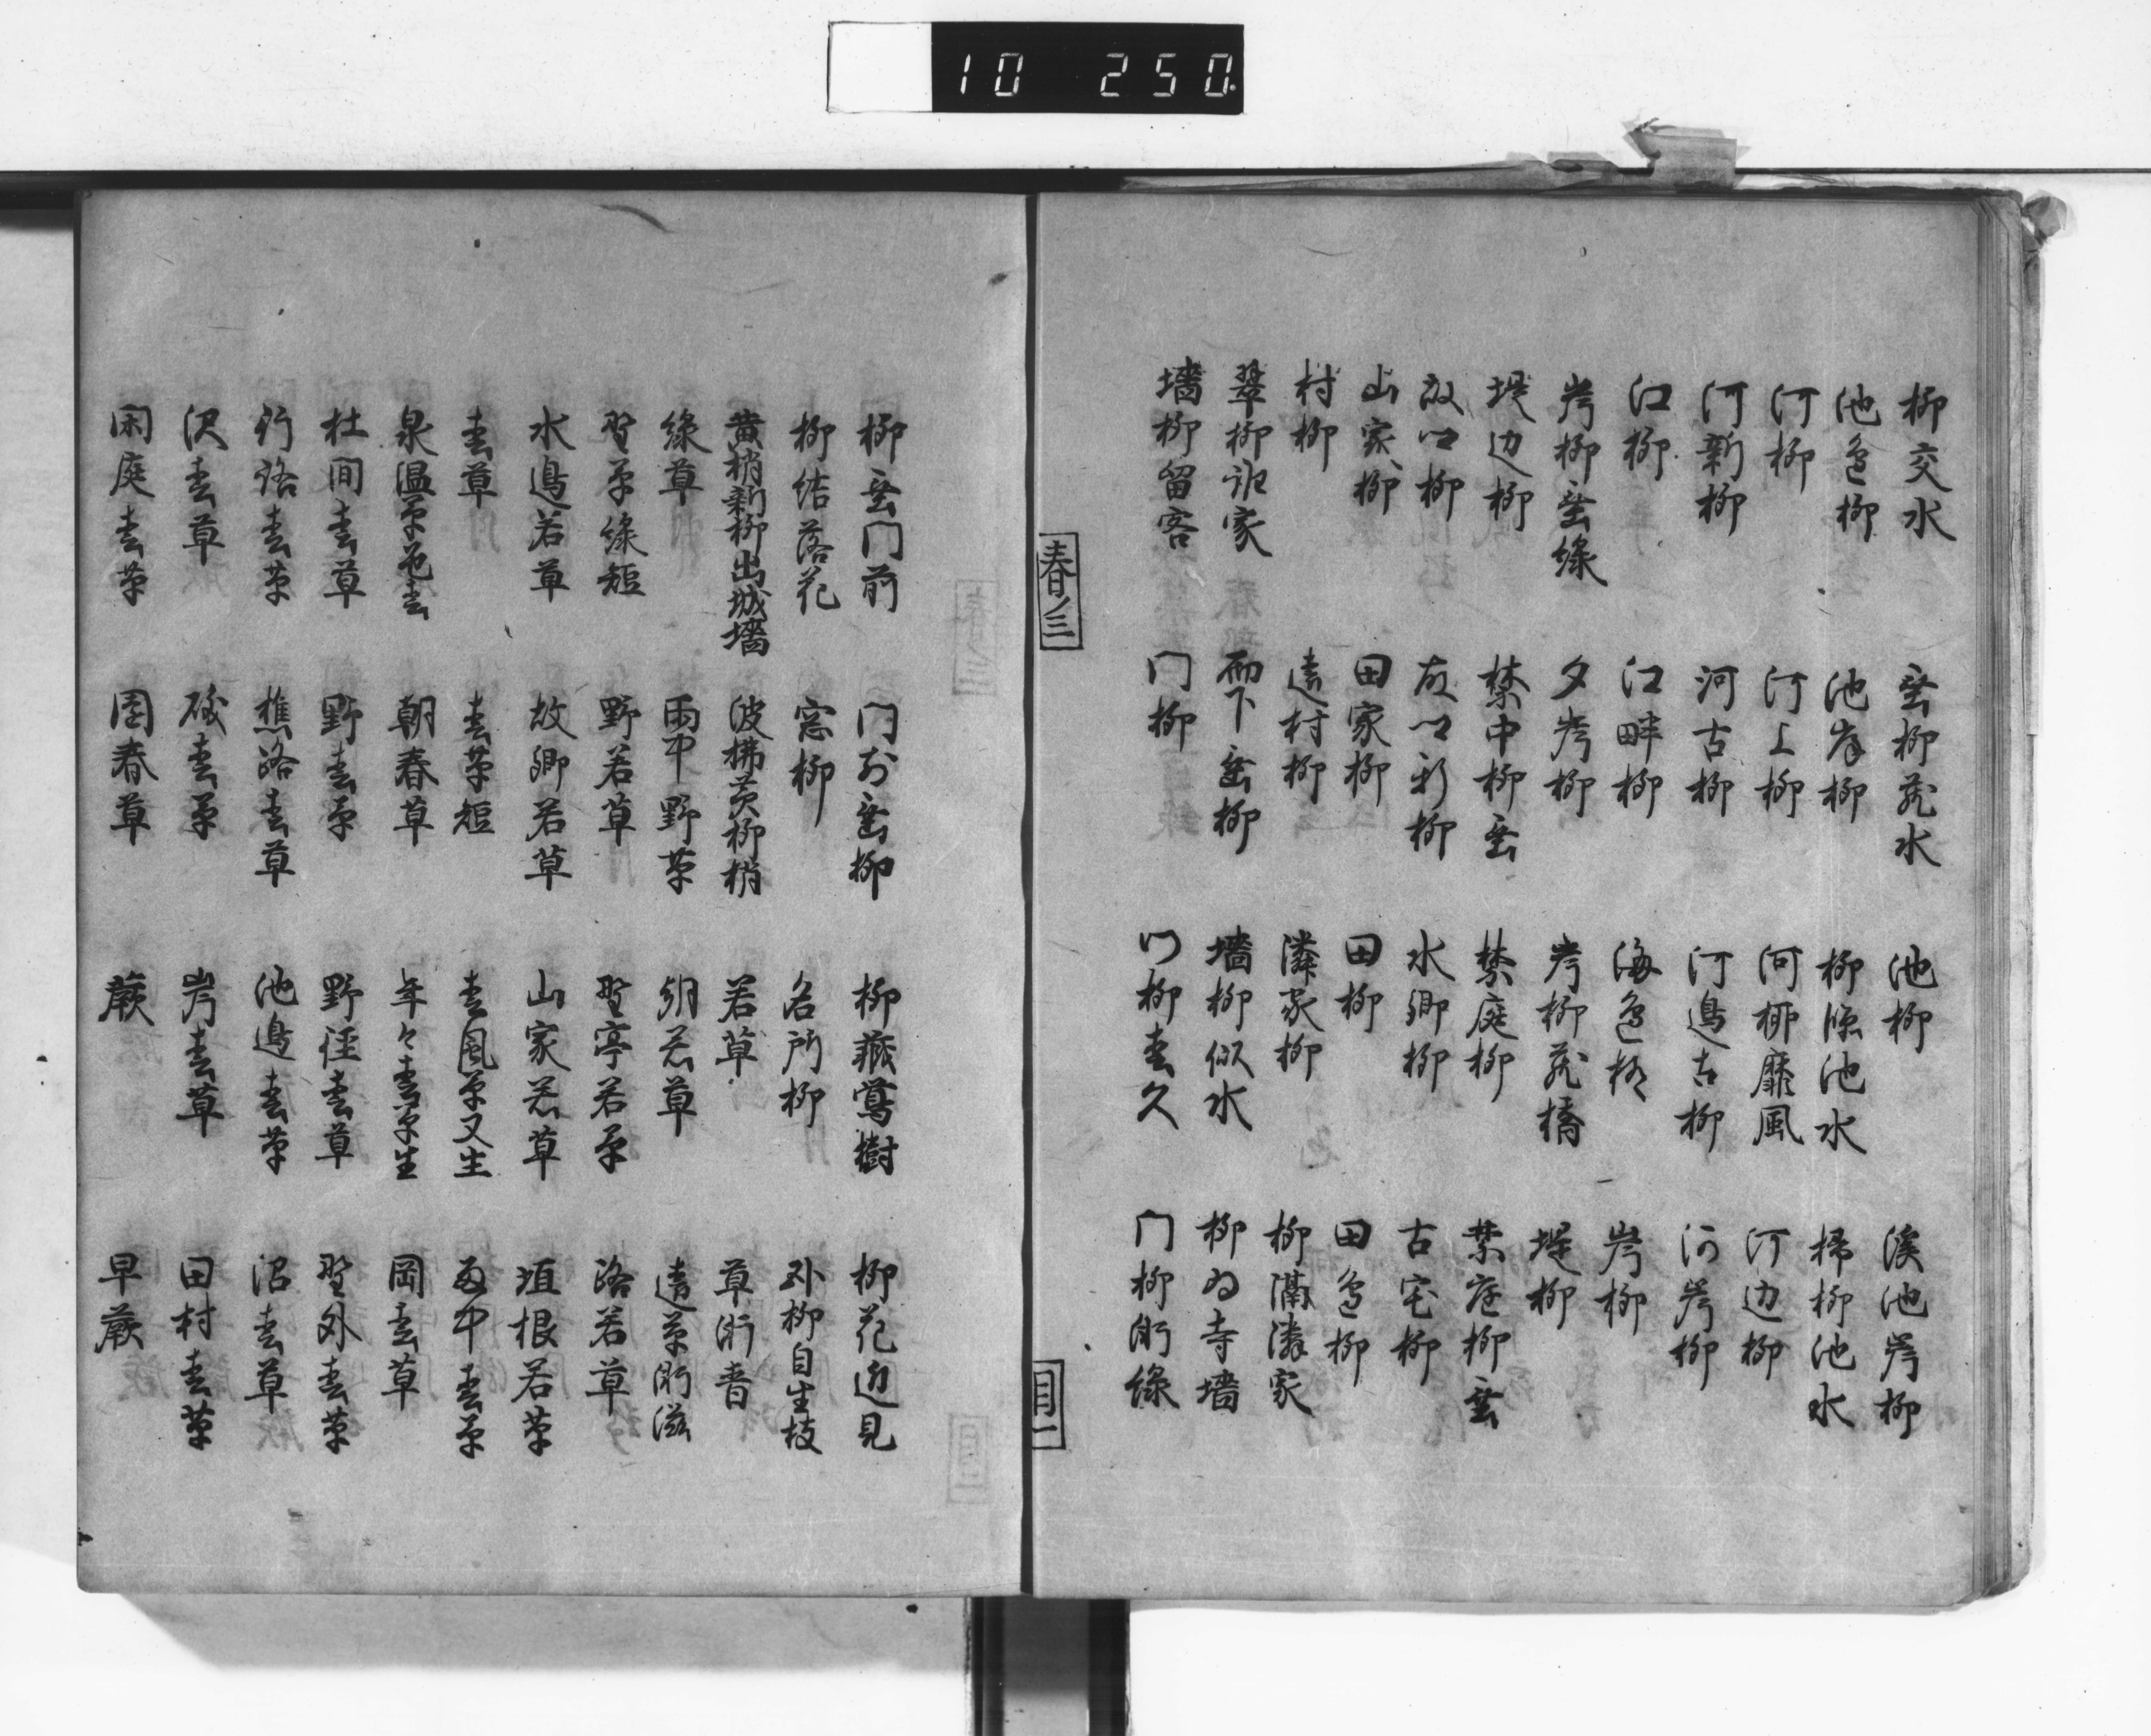 10 250
柳交水 垂柳蔵水 池柳 溪池岸柳
池邊柳 池岸柳 柳滌池水 掃柳池水
河柳 河上柳 河柳靡風 河辺柳
河新柳 河古柳 河邊古柳 河岸柳
江柳 江畔柳 海邊柳 岸柳
岸柳垂緑 夕岸柳 岸柳蔵橋 堤柳
堤辺柳 禁中柳垂 禁庭柳 禁庭柳垂
水郷柳 古宅柳
山家柳 田家柳 田柳 田邊柳
村柳 遠村柳 隣家柳 柳満隣家
翠柳誰家 雨下垂柳 墻柳似水 柳為寺墻
墻柳留客 門柳 門柳春久 門柳漸緑
春ノ三
目一
柳垂門前 門前垂柳 柳蔵鶯樹 柳花迎見
柳結落花 窓柳 名所柳 外柳自生枝
黄梢新柳出城墻 波拂黄柳梢 若草 草漸青
緑草 雨中野草 朝若草 遠草漸滋
野草緑短 野若草 野亭若草 路若草
水邊若草 故郷若草 山家若草 垣根若草
春草 春草短 春風草又生 雨中春草
泉温草色春 朝春草 年々春草生 岡春草
杜間春草 野春草 野径春草 野外春草
行路春草 樵路春草 池邊春草 沼春草
沢春草 磯春草 岸春草 田村春草
閑庭春草 園春草 蕨 早蕨